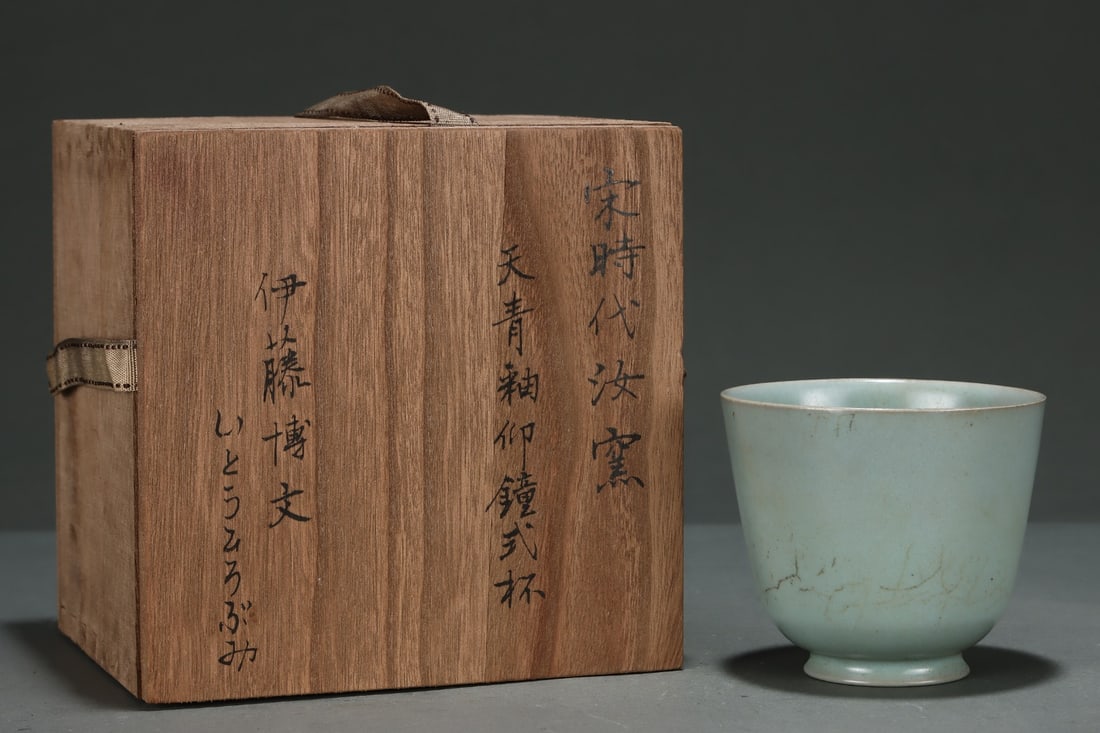 宋時代汝窯
天青釉仰鐘式杯
伊藤博文
いとうひろぶみ